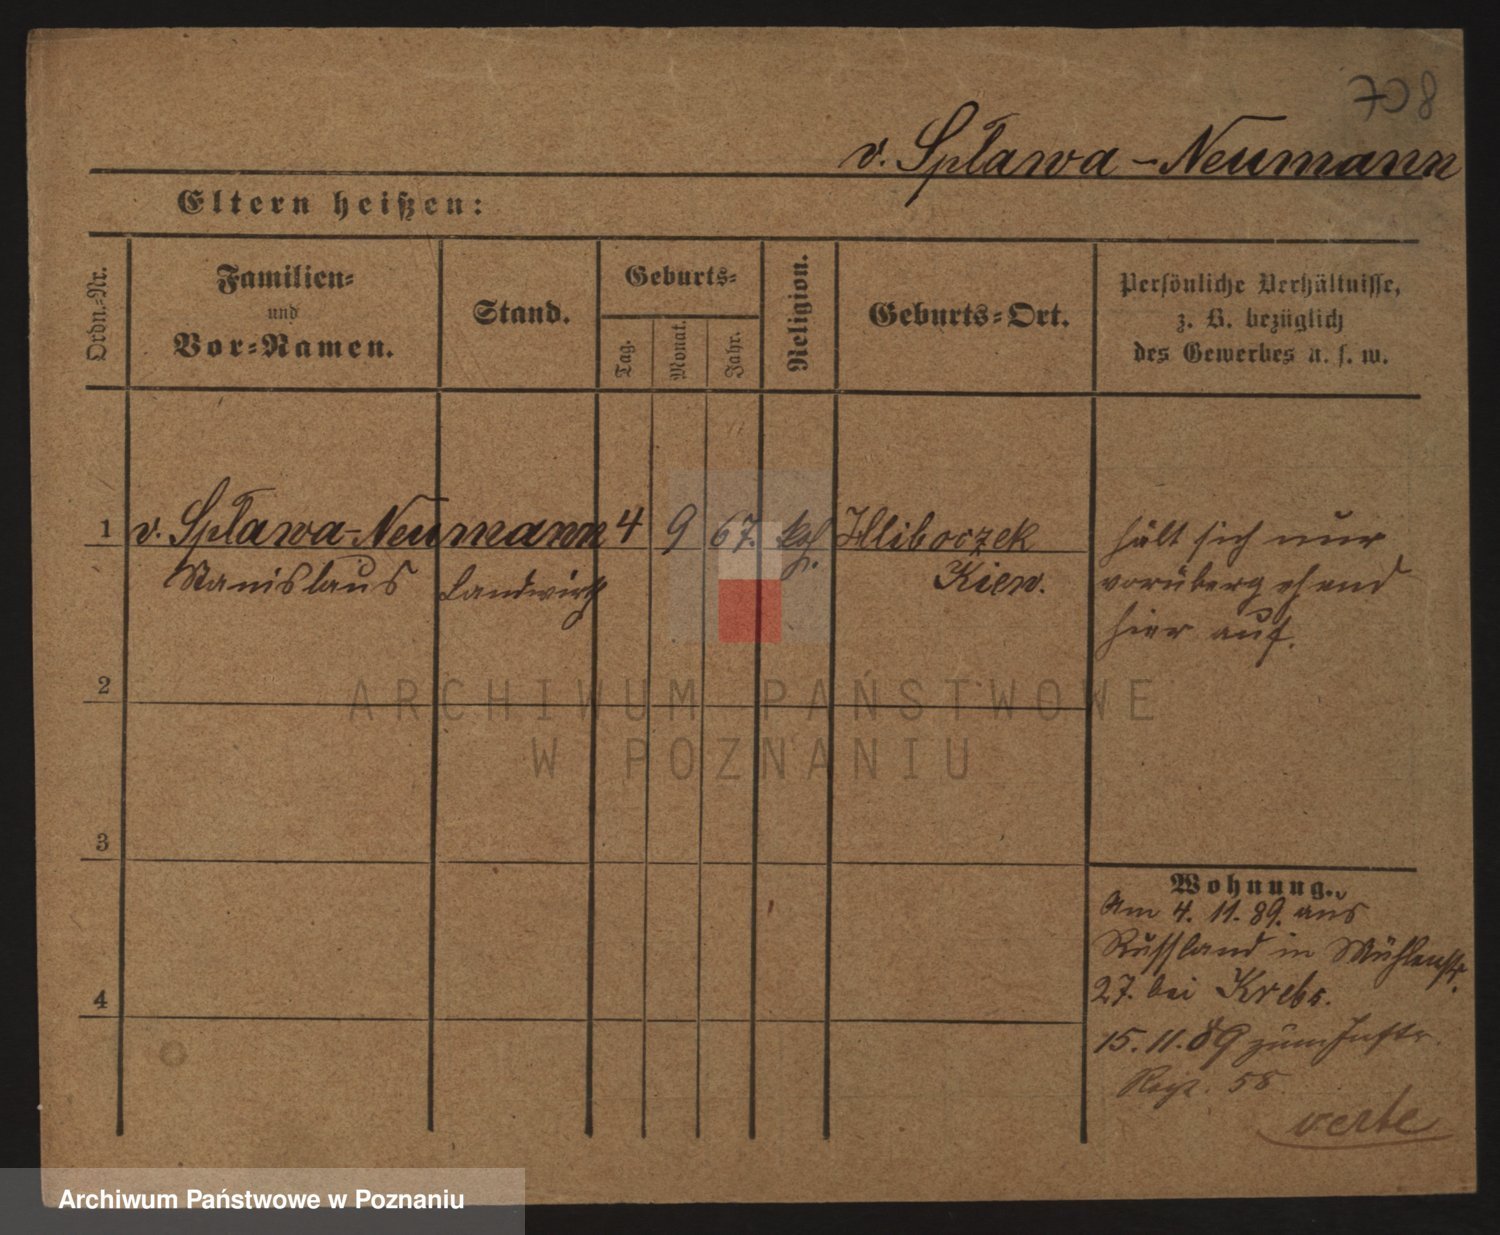 708
v. Spława-Neumann
Eltern heißen:
Ordn.-Nr.
Familien-
und
Vor-Namen.
Stand.
Geburts-
Tag.
Monat.
Jahr.
Religion.
Geburts-Ort.
Persönliche Verhältnisse,
z. B. bezüglich
des Gewerbes u. s. w.
1 v. Spława-Neumann 4 9 67. kath. Hliboczek
Stanislaus Landwirth Kiew.
hält sich nur
vorübergehend
hier auf.
2
3
4
Wohnung.
Am 4. 11. 89. aus
Russland in Mühlenstr.
27. bei Krebs.
15. 11. 89 zum
58
verte
ARCHIWUM PAŃSTWOWE
W POZNANIU
Archiwum Państwowe w Poznaniu